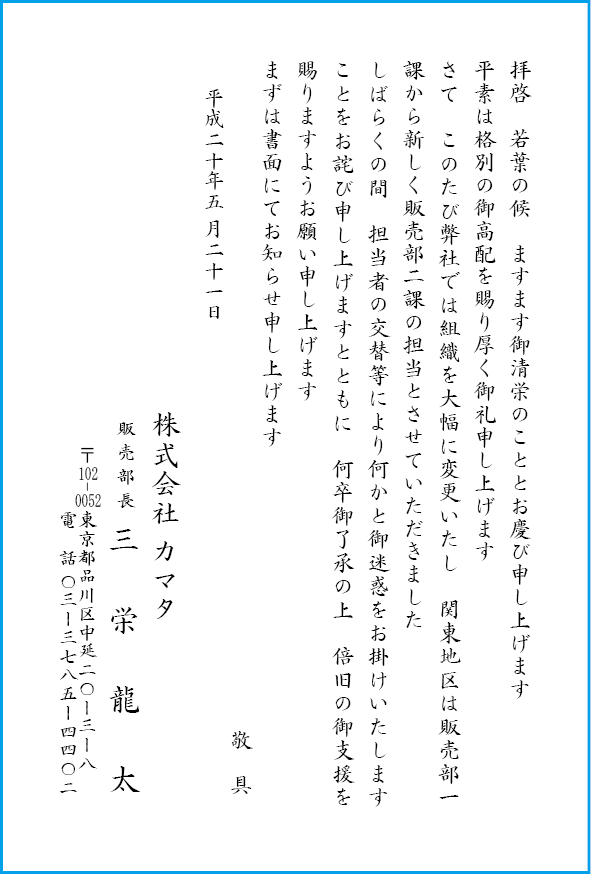 拝啓　若葉の候　ますます御清栄のこととお慶び申し上げます
平素は格別の御高配を賜り厚く御礼申し上げます
さて　このたび弊社では組織を大幅に変更いたし　関東地区は販売部一
課から新しく販売部二課の担当とさせていただきました
しばらくの間　担当者の交替等により何かと御迷惑をお掛けいたします
ことをお詫び申し上げますとともに　何卒御了承の上　倍旧の御支援を
賜りますようお願い申し上げます
まずは書面にてお知らせ申し上げます
敬具
平成二十年五月二十一日
株式会社 カマタ
販売部長 三栄龍太
〒102-0052 東京都品川区中延二〇ー三ー八
電話 〇三ー三七八五ー四四〇二